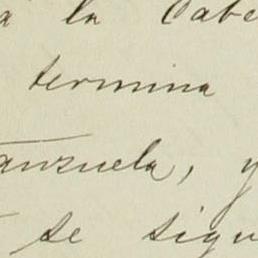 a la Cabe
termina
anzuela, y
se sigu